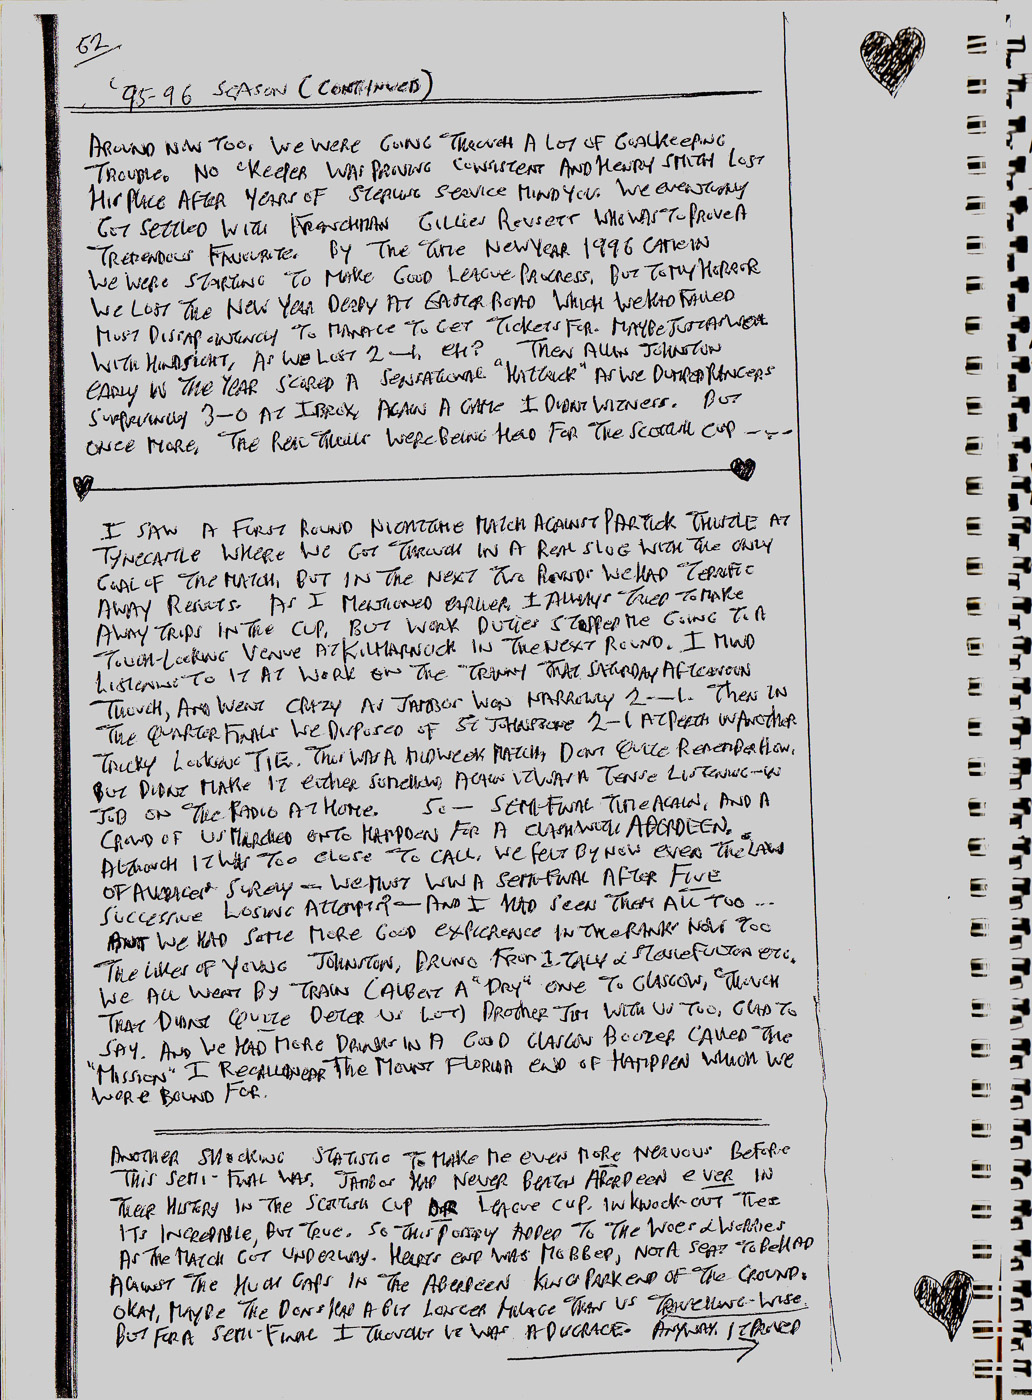 52
'95-96 SEASON (CONTINUED)
AROUND NOW TOO, WE WERE GOING THROUGH A LOT OF GOALKEEPING
TROUBLE. NO 'KEEPER WAS PROVING CONSISTENT AND HENRY SMITH LOST
HIS PLACE AFTER YEARS OF STERLING SERVICE MIND YOU. WE EVENTUALLY
GOT SETTLED WITH FRENCHMAN GILLIES ROUSETT WHO WAS TO PROVE A
TREMENDOUS FAVOURITE. BY THE TIME NEW YEAR 1996 CAME IN
WE WERE STARTING TO MAKE GOOD LEAGUE PROGRESS, BUT TO MY HORROR
WE LOST THE NEW YEAR DERBY AT EASTER ROAD WHICH WE HAD FAILED
MOST DISSAPOINTINGLY TO MANAGE TO GET TICKETS FOR. MAYBE JUST AS WELL
WITH HINDSIGHT, AS WE LOST 2-1, EH? THEN ALLAN JOHNSTON
EARLY IN THE YEAR SCORED A SENSATIONAL "HATTRICK" AS WE DUMPED RANGERS
SURPRISINGLY 3-0 AT IBROX, AGAIN A GAME I DIDNT WITNESS. BUT
ONCE MORE, THE REAL THRILLS WERE BEING HELD FOR THE SCOTTISH CUP ---
I SAW A FIRST ROUND NIGHTTIME MATCH AGAINST PARTICK THISTLE AT
TYNECASTLE WHERE WE GOT THROUGH IN A REAL SLOG WITH THE ONLY
GOAL OF THE MATCH, BUT IN THE NEXT TWO ROUNDS WE HAD TERRIFIC
AWAY RESULTS. AS I MENTIONED EARLIER, I ALWAYS TRIED TO MAKE
AWAY TRIPS IN THE CUP, BUT WORK DUTIES STOPPED ME GOING TO A
TOUGH-LOOKING VENUE AT KILMARNOCK IN THE NEXT ROUND. I MIND
LISTENING TO IT AT WORK ON THE 'TRANNY' THAT SATURDAY AFTERNOON
THOUGH, AND WENT CRAZY AS JAMBOS WON NARROWLY 2-1. THEN IN
THE QUARTER FINALS WE DISPOSED OF ST JOHNSTONE 2-1 AT PERTH IN ANOTHER
TRICKY LOOKING TIE. THIS WAS A MIDWEEK MATCH, DONT QUITE REMEMBER HOW,
BUT DIDNT MAKE IT EITHER SOMEHOW, AGAIN IT WAS A TENSE LISTENING-IN
JOB ON THE RADIO AT HOME. SO - SEMI-FINAL TIME AGAIN, AND A
CROWD OF US MARCHED ONTO HAMPDEN FOR A CLASH WITH ABERDEEN.
ALTHOUGH IT WAS TOO CLOSE TO CALL, WE FELT BY NOW EVEN THE LAW
OF AVERAGES SURELY - WE MUST WIN A SEMI-FINAL AFTER FIVE
SUCCESSIVE LOSING ATTEMPTS? - AND I HAD SEEN THEM ALL TOO ...
BUT WE HAD SOME MORE GOOD EXPERIENCE IN THE RANKS NOW TOO
THE LIKES OF YOUNG JOHNSTON, BRUNO FROM ITALY & STEVIE FULTON ETC.
WE ALL WENT BY TRAIN (ALBEIT A "DRY" ONE TO GLASGOW, THOUGH
THAT DIDNT QUITE DETER US LOT) BROTHER JIM WITH US TOO, GLAD TO
SAY. AND WE HAD MORE DRINKS IN A GOOD GLASGOW BOOZER CALLED THE
"MISSION" I RECALL NEAR THE MOUNT FLORIDA END OF HAMPDEN WHICH WE
WERE BOUND FOR.
ANOTHER SHOCKING STATISTIC TO MAKE ME EVEN MORE NERVOUS BEFORE
THIS SEMI-FINAL WAS, JAMBOS HAD NEVER BEATEN ABERDEEN EVER IN
THEIR HISTORY IN THE SCOTTISH CUP OR LEAGUE CUP. IN KNOCK-OUT TIES
ITS INCREDABLE, BUT TRUE. SO THIS POSSIBLY ADDED TO THE WOES & WORRIES
AS THE MATCH GOT UNDERWAY. HEARTS END WAS MOBBED, NOT A SEAT TO BE HAD
AGAINST THE HUGE GAPS IN THE ABERDEEN KINGS PARK END OF THE GROUND.
OKAY, MAYBE THE DONS HAD A BIT LONGER MILAGE THAN US TRAVELLING-WISE.
BUT FOR A SEMI-FINAL I THOUGHT IT WAS A DISGRACE. ANYWAY, IT PROVED